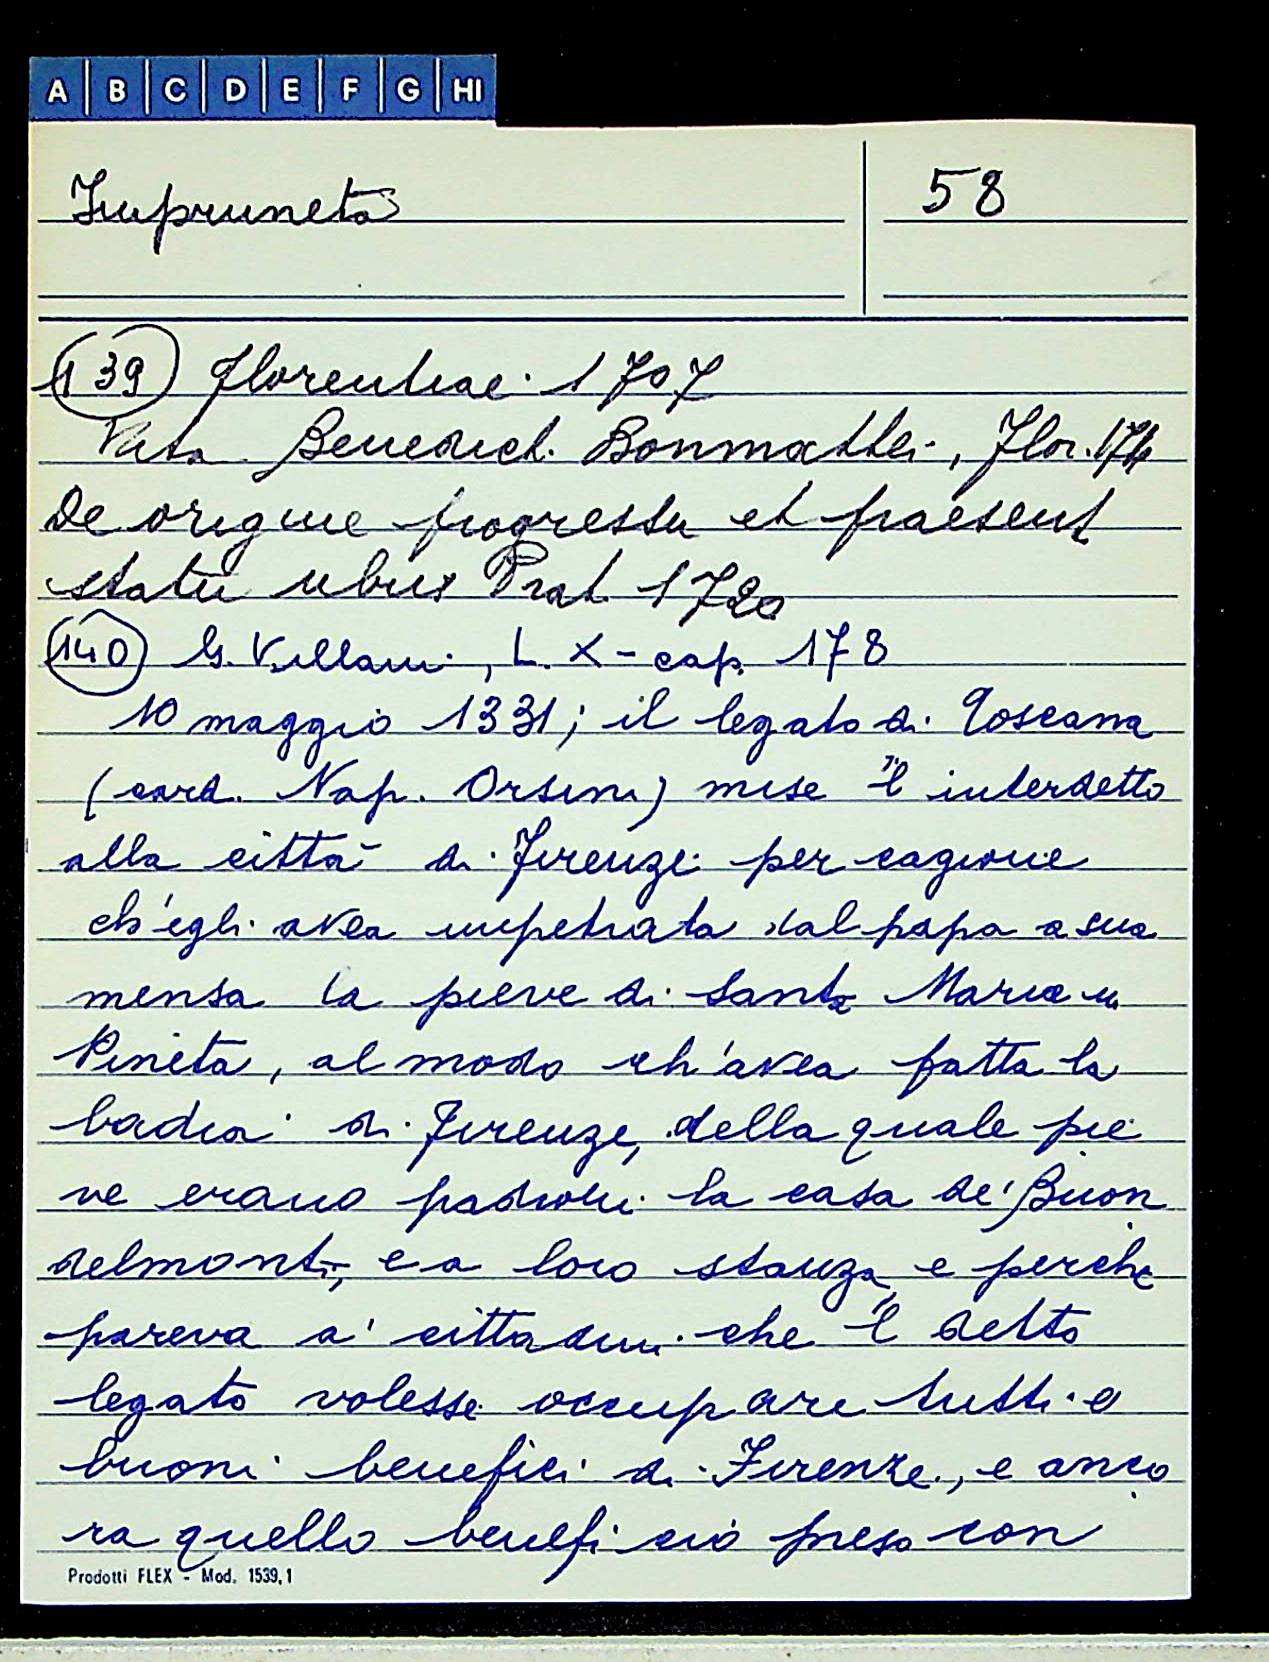 A B C D E F G HI
Impruneta 58
139 Florentiae. 1707
Vita Benedict. Bonmatthei, Flor. 1714
De origine progressu et praesent
statu urbis Prat. 1720
140 G. Villani, L. X - cap. 178
10 maggio 1331; il legato di Toscana
(card. Nap. Orsini) mise 'l interdetto
alla città di Firenze per cagione
ch'egli avea impetrata dal papa a sua
mensa la pieve di Santa Maria in
Pineta, al modo ch'avea fatta la
badia di Firenze, della quale pie
ve erano padroni la casa de' Buon
delmonti, e a loro stanza, e perche
pareva a' cittadini che 'l detto
legato volesse occupare tutti e
buoni benefici di Firenze, e anco
ra quello beneficio preso con
Prodotti FLEX - Mod. 1539,1